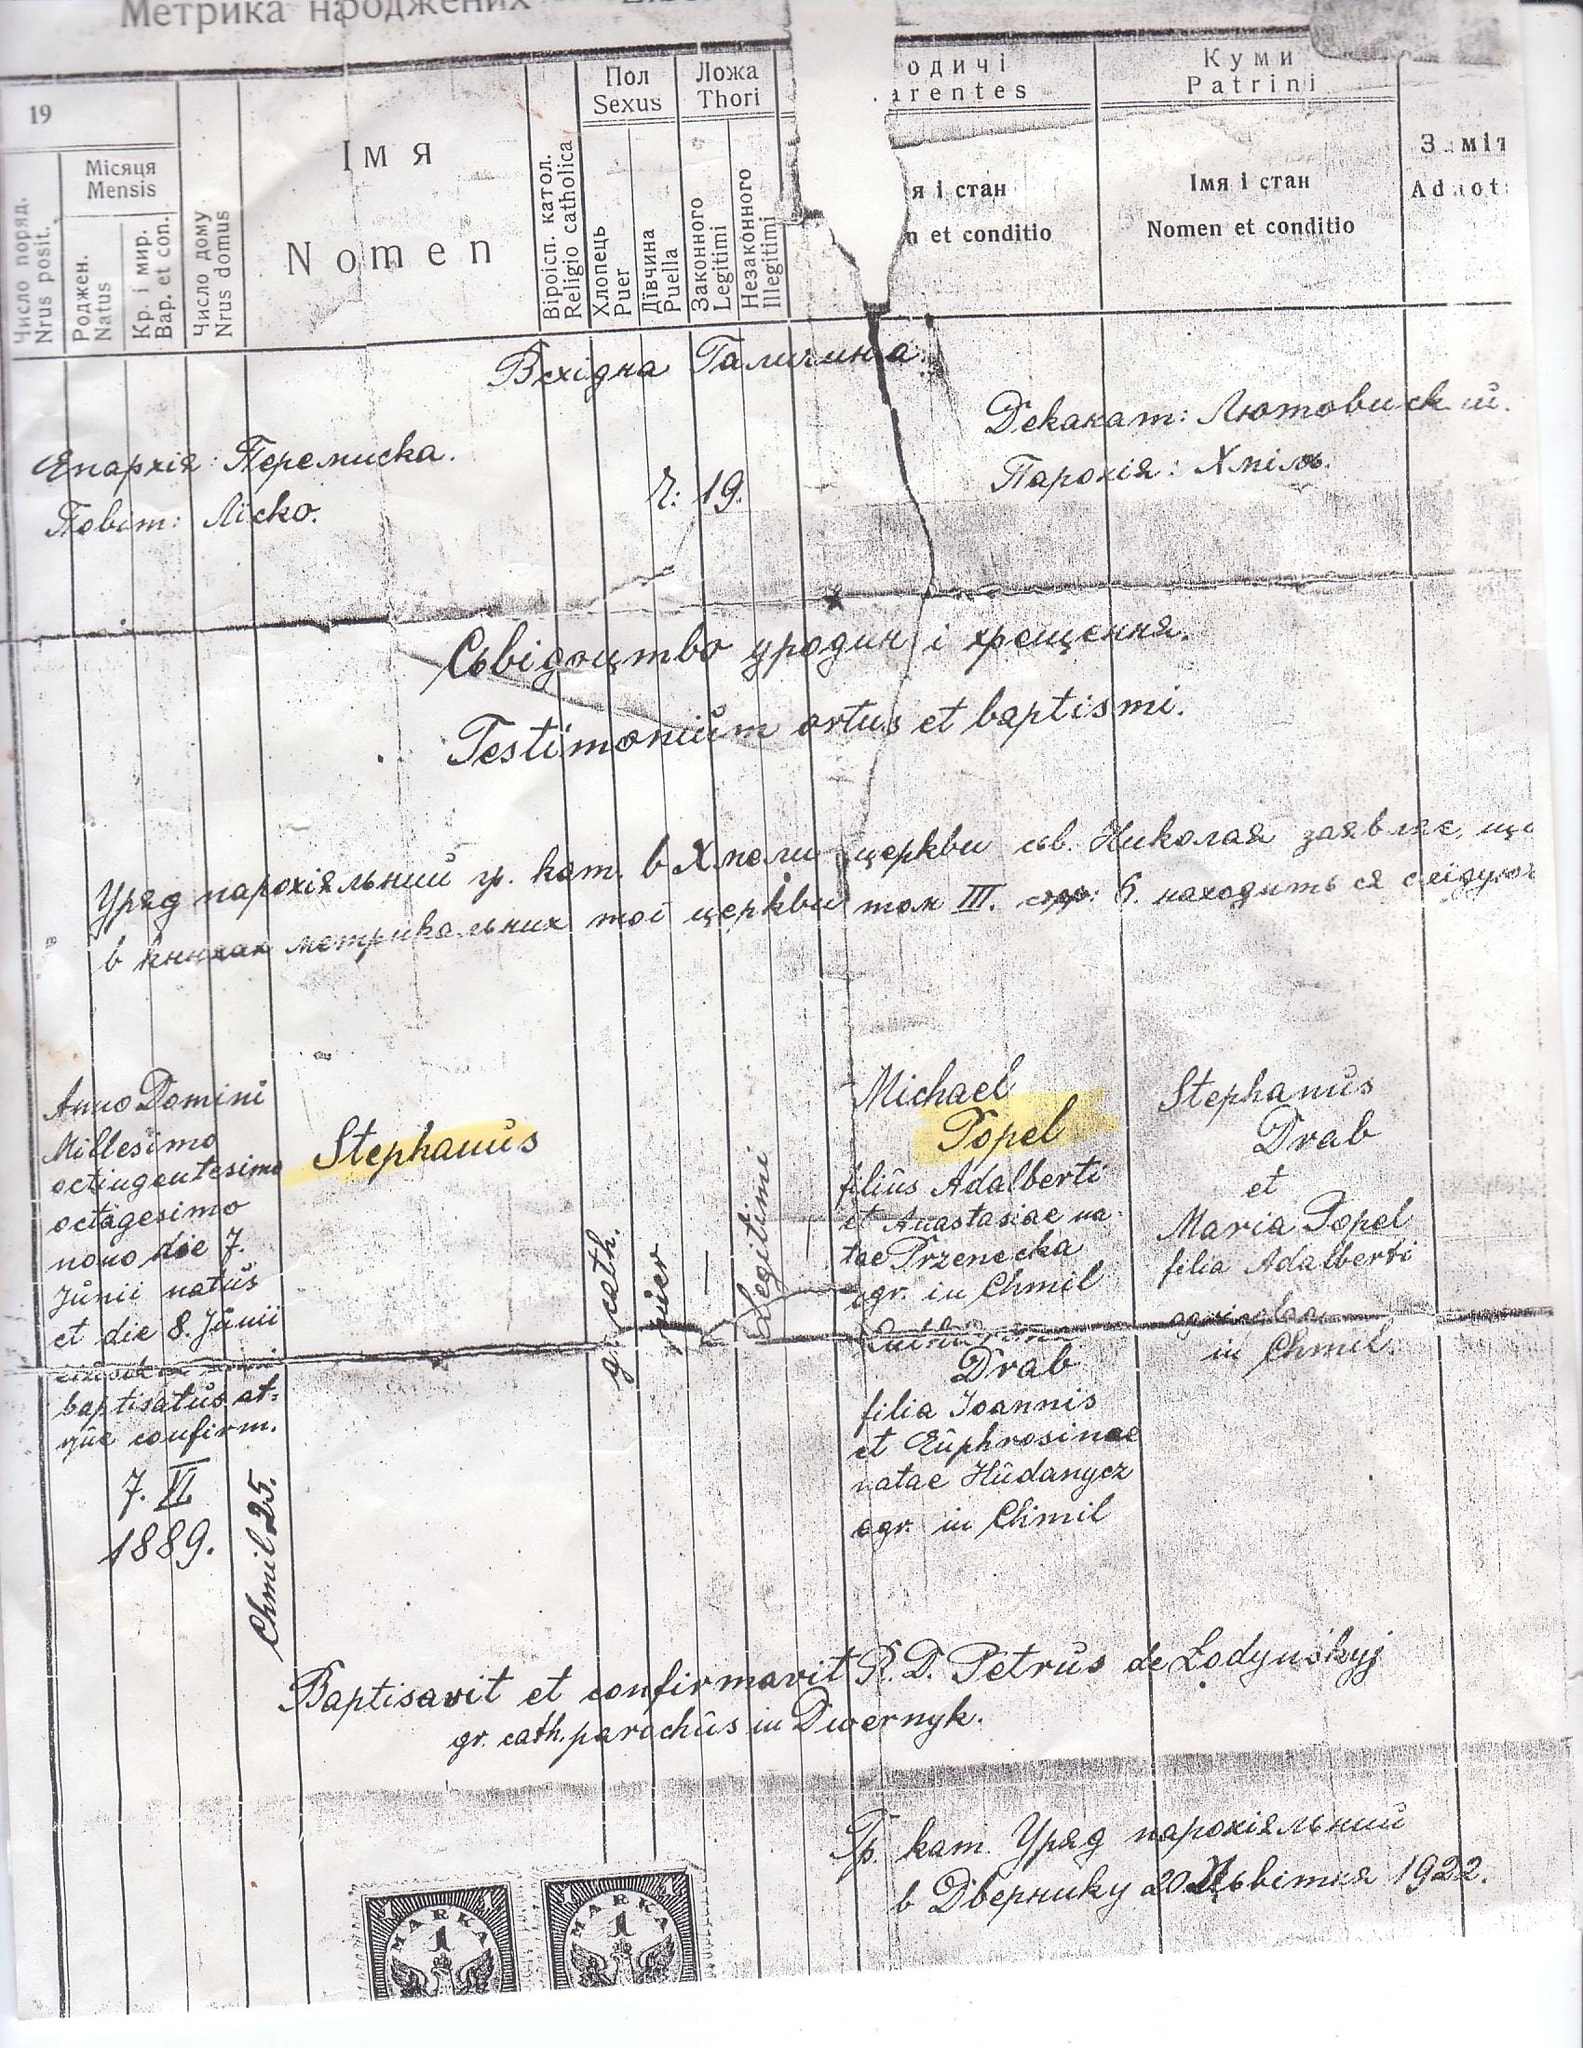 Метрика народжених
19
Число поряд.
Nrus posit.
Місяця
Mensis
Роджен.
Natus
Кр. і мир.
Bap. et con.
Число дому
Nrus domus
Імя
Nomen
Віроісп. катол.
Religio catholica
Пол
Sexus
Хлопець
Puer
Дівчина
Puella
Ложа
Thori
Законного
Legitimi
Незаконного
Illegitimi
одичі
arentes
я і стан
n et conditio
Куми
Patrini
Імя і стан
Nomen et conditio
Заміт
Adnot
Всхідна Галичина
Епархія: Перемиска.
Повіт: Ліско.
Ч: 19.
Деканат: Лютовиский.
Парохія: Хміль.
Сьвідоцтво уродин і хрещення.
Testimonium ortus et baptismi.
Уряд парохіяльний гр. кат. в Хмели церкви сьв. Николая заявляє, що
в книгах метрикальних тої церкви том III. стр: 6. находить ся слідуюч
Anno Domini
Millesimo
octingentesimo
octagesimo
nono die 7.
Junii natus
et die 8. Junii
baptisatus at-
que confirm.
7. VI
1889.
Chmil 25.
Stephanus
gr. cath.
puer
—
Legitimi
—
Michael
Popel
filius Adalberti
et Anastasiae na-
tae Przenecka
agr. in Chmil
Drab
filia Joannis
et Euphrosinae
natae Hudanycz
agr. in Chmil
Stephanus
Drab
et
Maria Popel
filia Adalberti
agricolae
in Chmil.
Baptisavit et confirmavit R. D. Petrus de Lodynskyj
gr. cath. parochus in Dwernyk.
Гр. кат. Уряд парохіяльний
в Дверникy 20 Цьвітня 1922.
1 MARKA 1
1
1 MARKA 1
1